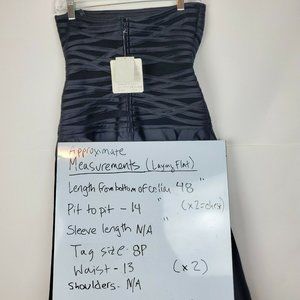 Approximate
Measurements (Laying Flat)
Length from bottom of collar 48"
Pit to pit - 14" (x2=chest)
Sleeve length N/A
Tag size - 8P
Waist - 13 (x2)
Shoulders - N/A